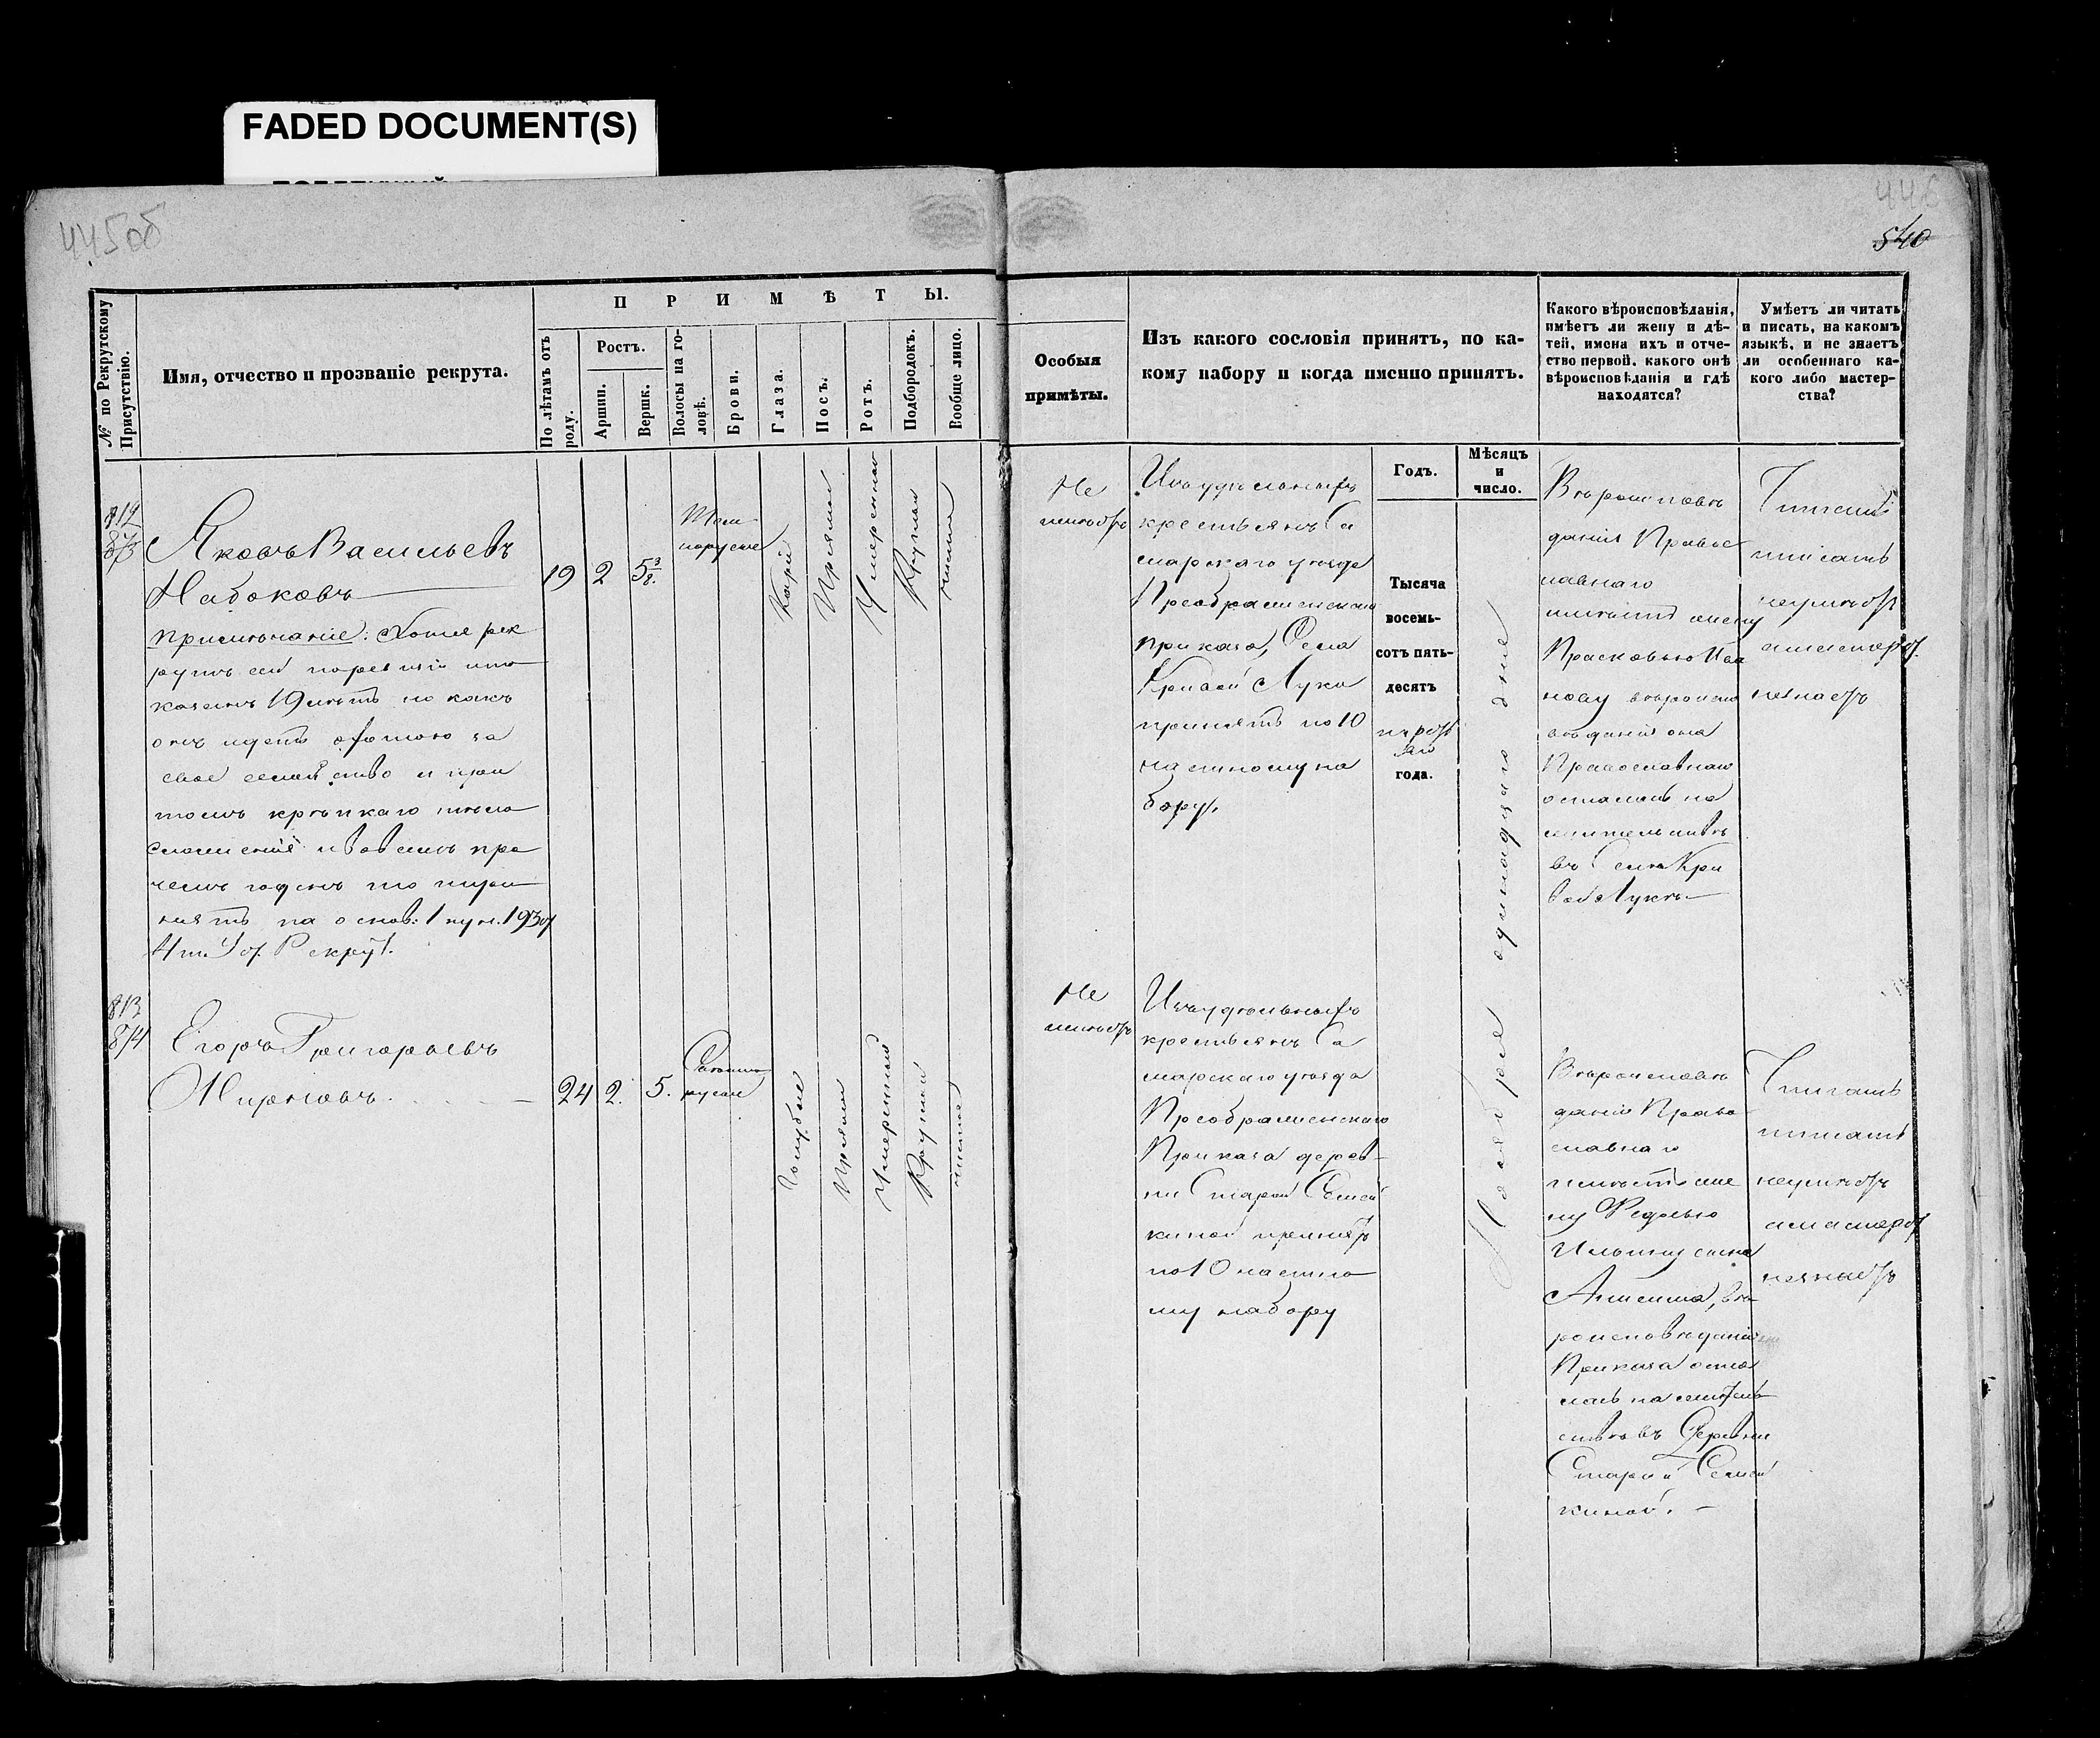 FADED DOCUMENT(S)
445об
446
540
№ по Рекрутскому Присутствію.
Имя, отчество и прозваніе рекрута.
ПРИМѢТЫ.
По лѣтамъ отъ роду.
Ростъ.
Аршин.
Вершк.
Волосы на головѣ.
Брови.
Глаза.
Носъ.
Ротъ.
Подбородокъ.
Вообще лицо.
Особыя
примѣты.
Изъ какого сословія принятъ, по ка-
кому набору и когда именно принятъ.
Какого вѣроисповѣданія,
имѣетъ ли жену и дѣ-
тей, имена ихъ и отче-
ство первой, какого онѣ
вѣроисповѣданія и гдѣ
находятся?
Умѣетъ ли читать
и писать, на какомъ
языкѣ, и не знаетъ
ли особеннаго ка-
кого либо мастер-
ства?
Годъ.
Мѣсяцъ
и
число.
812
873
Яковъ Васильевъ
Набоковъ
Примѣчаніе: Хотя рек
рутъ сей по ревизіи пока
казанъ 19 лѣтъ но какъ
онъ идетъ охотою за
свое семейство и при
томъ крѣпкаго тѣло
сложенія и во всемъ про
чемъ годенъ то при
нятъ на основ: 1 пун. 193 ст
Уст. Рекрут.
19
2
5 3/8.
Темно
русые
Каріе
Прямой
Умеренной
Круглой
чистое
Не
имѣетъ
Изъ удѣльныхъ
крестьянъ Са
марскаго уѣзда
Преображенскаго
приказа, Села
Кривой Луки
принятъ по 10
частному на
бору.
Тысяча
восемь-
сотъ пять-
десятъ
года.
Ноября одинадцаго дня
Вѣроисповѣ
данія Правос
лавнаго
имѣетъ жену
Прасковью Ива
нову вѣроиспо
вѣданія она
Православнаго
осталась на
жительствѣ
въ Селѣ Кри
вой Лукѣ
Читать
писать
неумѣетъ
а мастерст.
незнаетъ
813
874
Егоръ Григорьевъ
24
2.
5.
Свѣтло
русые
Голубые
Прямой
Умеренный
Круглый
чистое
Не
имѣетъ
Изъ удѣльныхъ
крестьянъ Са
марскаго уѣзда
Преображенскаго
Приказа дерев-
ни Старой Семей
киной принятъ
по 10 частно
му набору
Вѣроисповѣ
данія Право
славнаго
имѣетъ же
ну Федосью
Ильину сына
вѣ
роисповѣданія
оста
лась на житель
ствѣ въ Деревни
Старой Семей
киной.
Читать
писать
неумѣетъ
а мастерст
незнаетъ